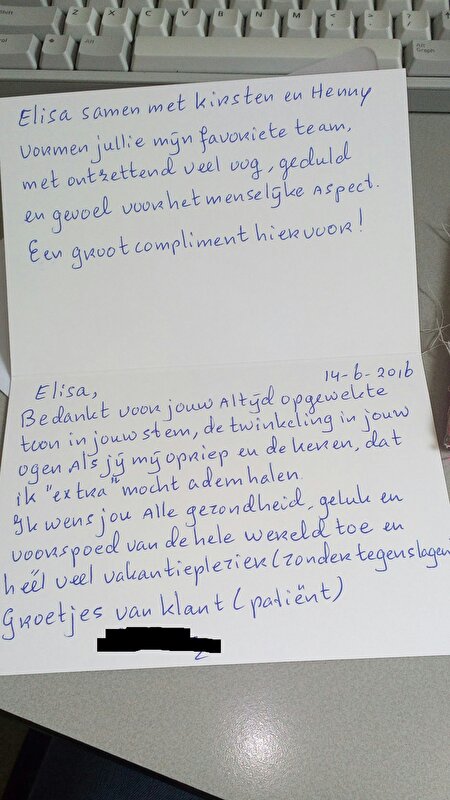 Shift
Z
X
C
V
B
N
M
Alt
Alt
Graph
Elisa samen met kirsten en Henny
vormen jullie mijn favoriete team,
met ontzettend veel oog, geduld
en gevoel voor het menselijke aspect.
Een groot compliment hiervoor!
14-6-2016
Elisa,
Bedankt voor jouw Altijd opgewekte
toon in jouw stem, de twinkeling in jouw
ogen Als jij mij opriep en de keren, dat
ik "extra" mocht ademhalen.
Ik wens jou Alle gezondheid, geluk en
voorspoed van de hele wereld toe en
héél veel vakantieplezier (zonder tegenslagen
Groetjes van klant (patiënt)